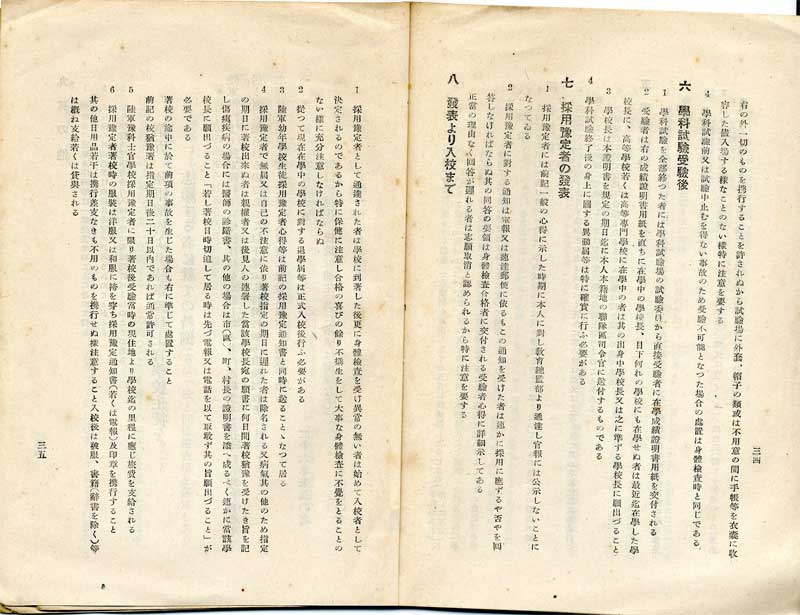 者の外一切のものを携行することを許されぬから試驗場に外套、帽子の類或は不用意の間に手帳等を衣嚢に收
容した儘入場する樣なことのない樣特に注意を要する
4 學科試驗前又は試驗中止むを得ない事故のため受驗不可能となつた場合の處置は身體檢査時と同じである
六 學科試驗受驗後
1 學科試驗を全部終つた者には學科試驗場の試驗委員から直接受驗者に在學成績證明書用紙を交付される
2 受驗者は右の成績證明書用紙を直ちに在學中の學校長、目下何れの學校にも在學せぬ者は最近迄在學した學
校長に、高等學校若くは高等專門學校に在學中の者は其の出身中學校長又は之に準ずる學校長に願出づること
3 學校長は本證明書を規定の期日迄に本人本籍地の聯隊區司令官に送付するものである
4 學科試驗終了後の身上に關する異動屆等は特に確實に行ふ必要がある
七 採用豫定者の發表
1 採用豫定者には前記一般の心得に示した時期に本人に對し敎育總監部より通達し官報には公示しないことに
なつてゐる
2 採用豫定者に對する通知は電報又は速達郵便に依るもこの通知を受けた者は速かに採用に應ずるや否やを回
答しなければならぬ其の回答の要領は身體檢査合格者に交付される受驗者心得に詳細示してある
正當の理由なく回答が遲れる者は志願取消と認められるから特に注意を要する
八 發表より入校まで
三四
1 採用豫定者として通達された者は學校に到著した後更に身體檢査を受け異常の無い者は始めて入校者として
決定されるのであるから特に保健に注意し合格の喜びの餘り不攝生をして大事な身體檢査に不覺をとることの
ない樣に充分注意しなければならぬ
2 從つて現在在學中の學校に對する退學屆等は正式入校後行ふ必要がある
3 陸軍幼年學校生徒採用豫定者心得等は前記の採用豫定通知書と同時に送ることゝなつて居る
4 採用豫定者で無屆又は自己の不注意に依り著校指定の期日に遲れた者は除名される又病氣其の他のため指定
の期日に著校出來ぬ者は親權者又は後見人の連署した當該學校長宛の願書に何日間著校猶豫を受けたき旨を記
し傷痍疾病の場合には醫師の診斷書、其の他の場合は市(區)、町、村長の證明書を添へ成るべく速かに當該學
校長に願出づること(若し著校日時切迫して居る時は先づ電報又は電話を以て取敢ず其の旨願出づること)が
必要である
著校の途中に於て前項の事故を生じた場合も右に準じて處置すること
前記の校猶豫者は指定期日後二十日以内であれば通常許可される
5 陸軍豫科士官學校採用豫定者に限り著校後受驗當時の現住地より學校迄の里程に應じ旅費を支給される
6 採用豫定者著校時の服裝は洋服又は和服に袴を穿ち採用豫定通知書(若くは電報)及印章を携行すること
其の他日用品若干は携行差支なきも不用のものを携行せぬ樣注意すること入校後は被服、書籍(辭書を除く)等
は概ね支給若くは貸與される
三五